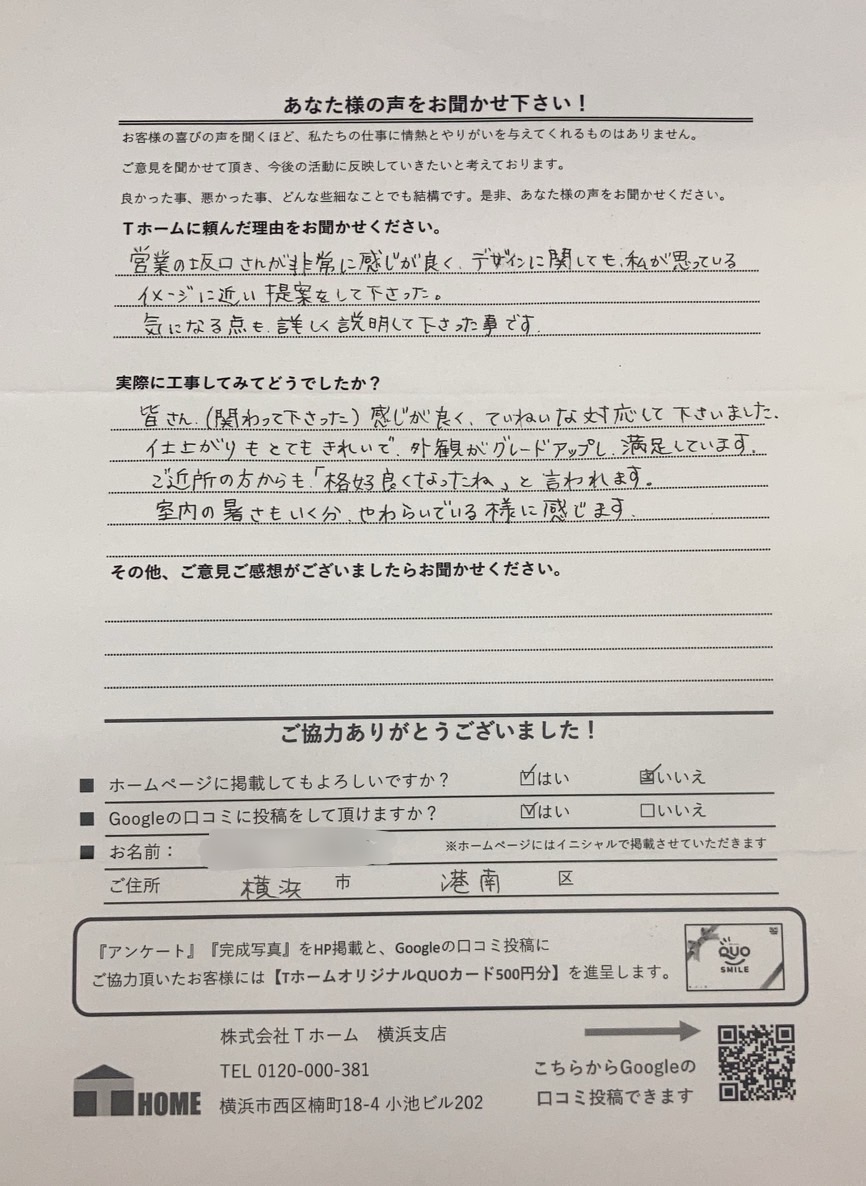 あなた様の声をお聞かせ下さい！
お客様の喜びの声を聞くほど、私たちの仕事に情熱とやりがいを与えてくれるものはありません。
ご意見を聞かせて頂き、今後の活動に反映していきたいと考えております。
良かった事、悪かった事、どんな些細なことでも結構です。是非、あなた様の声をお聞かせください。
Ｔホームに頼んだ理由をお聞かせください。
営業の坂口さんが非常に感じが良く、デザインに関しても、私が思っている
イメージに近い提案をして下さった。
気になる点も、詳しく説明して下さった事です。
実際に工事してみてどうでしたか？
皆さん、(関わって下さった)感じが良く、ていねいな対応して下さいました、
仕上がりもとてもきれいで、外観がグレードアップし、満足しています。
ご近所の方からも、「格好良くなったね」と言われます。
室内の暑さもいく分、やわらいでいる様に感じます。
その他、ご意見ご感想がございましたらお聞かせください。
ご協力ありがとうございました！
■ ホームページに掲載してもよろしいですか？ ☑はい ☑いいえ
■ Googleの口コミに投稿をして頂けますか？ ☑はい □いいえ
■ お名前： ※ホームページにはイニシャルで掲載させていただきます
ご住所 横浜 市 港南 区
『アンケート』『完成写真』をHP掲載と、Googleの口コミ投稿に
ご協力頂いたお客様には【TホームオリジナルQUOカード500円分】を進呈します。
QUO
SMILE
株式会社Ｔホーム 横浜支店
TEL 0120-000-381
横浜市西区楠町18-4 小池ビル202
T HOME
こちらからGoogleの
口コミ投稿できます